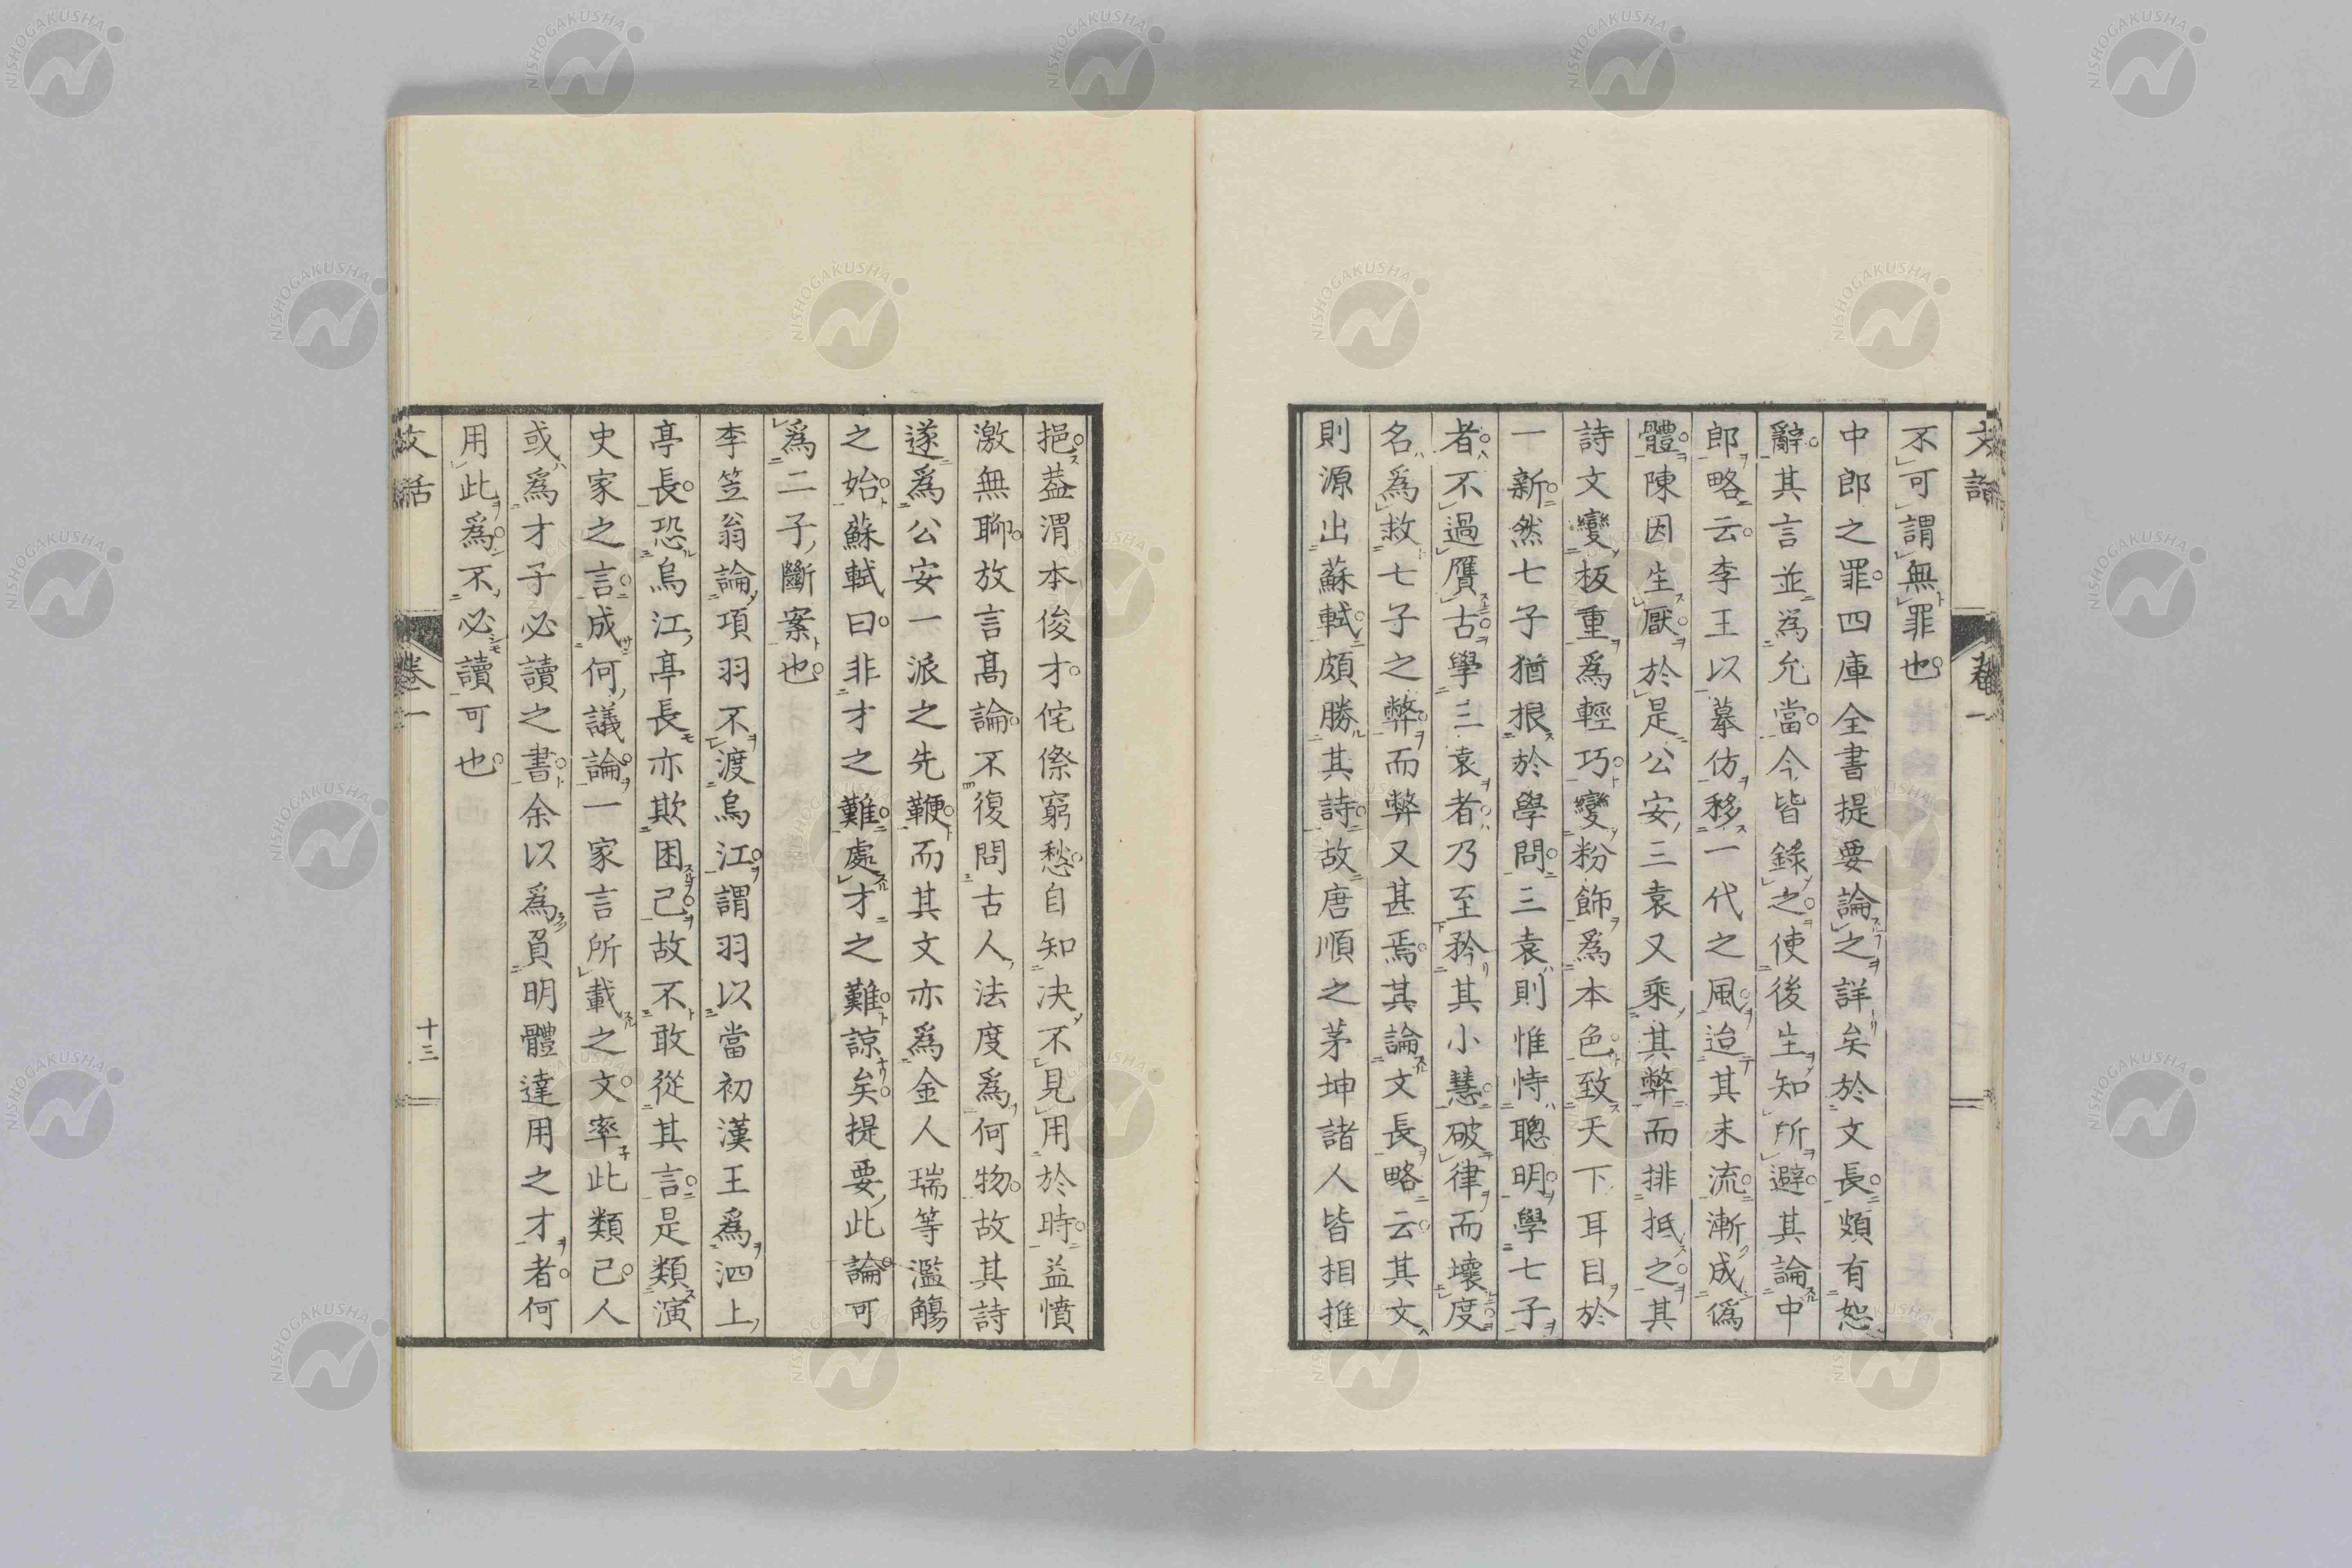 文話
卷一
不可謂無罪也
中郎之罪四庫全書提要論之詳矣於文長頗有恕
辭其言並爲允當今皆錄之使後生知所避其論中
郎略云李王以摹仿移一代之風迨其末流漸成僞
體陳因生厭於是公安三袁又乘其弊而排抵之其
詩文變板重爲輕巧變粉飾爲本色致天下耳目於
一新然七子猶根於學問三袁則惟恃聰明學七子
者不過贋古學三袁者乃至矜其小慧破律而壞度
名爲救七子之弊而弊又甚焉其論文長略云其文
則源出蘇軾頗勝其詩故唐順之茅坤諸人皆相推
挹葢渭本俊才侘傺窮愁自知決不見用於時益憤
激無聊放言高論不復問古人法度爲何物故其詩
遂爲公安一派之先鞭而其文亦爲金人瑞等濫觴
之始蘇軾曰非才之難處才之難諒矣提要此論可
爲二子斷案也
李笠翁論項羽不渡烏江謂羽以當初漢王爲泗上
亭長恐烏江亭長亦欺困己故不敢從其言是類演
史家之言成何議論一家言所載之文率此類已人
或爲才子必讀之書余以爲負明體達用之才者何
用此爲不必讀可也
文話
卷一
十三
NISHOGAKUSHA